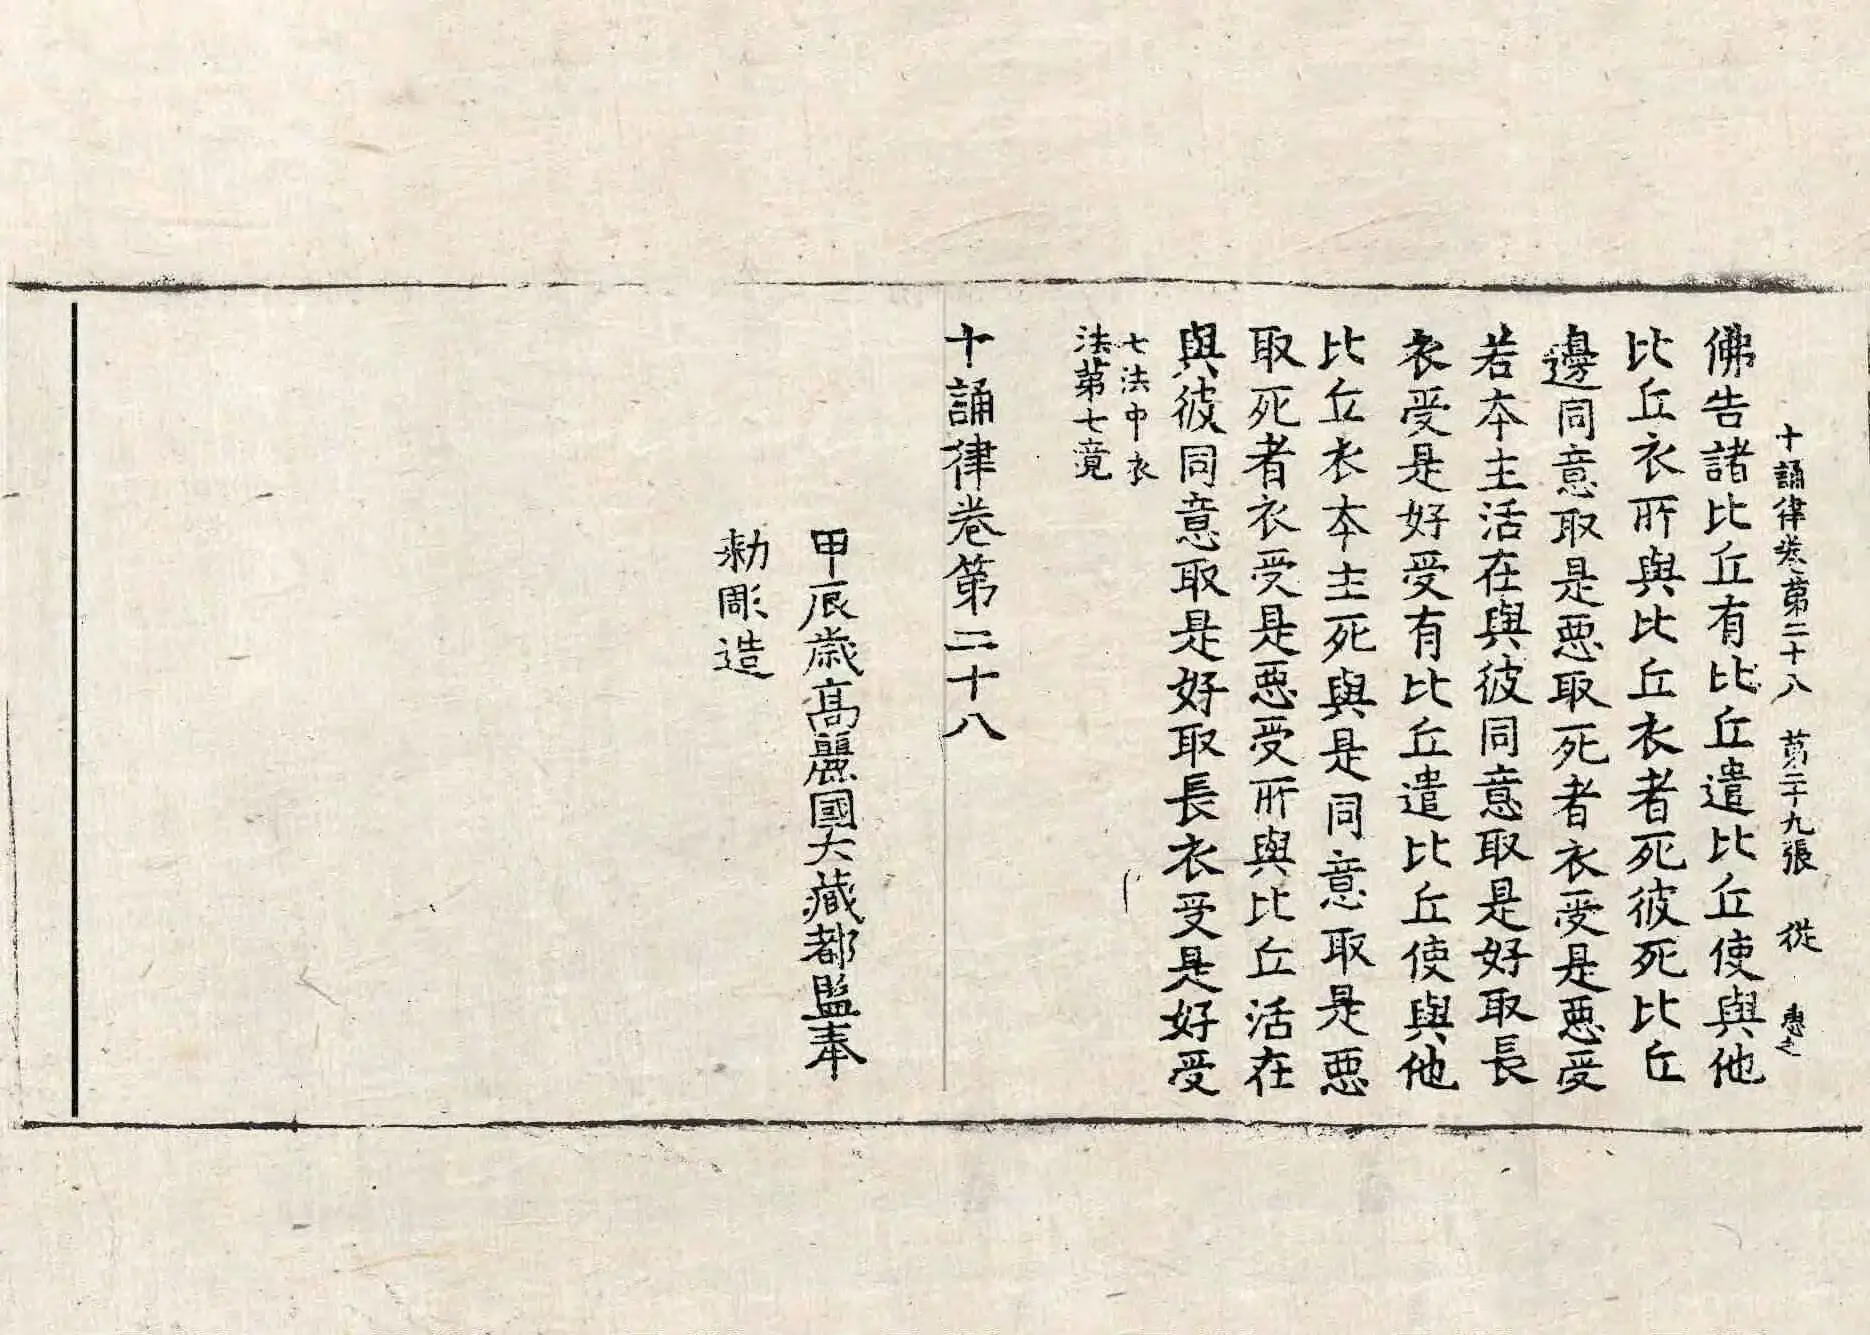 十誦律卷第二十八 第二十九張 從 惠之
佛告諸比丘有比丘遣比丘使與他
比丘衣所與比丘衣者死彼死比丘
邊同意取是惡取死者衣受是惡受
若本主活在與彼同意取是好取長
衣受是好受有比丘遣比丘使與他
比丘衣本主死與是同意取是惡
取死者衣受是惡受所與比丘活在
與彼同意取是好取長衣受是好受
七法中衣
法第七竟
十誦律卷第二十八
甲辰歲高麗國大藏都監奉
勅彫造